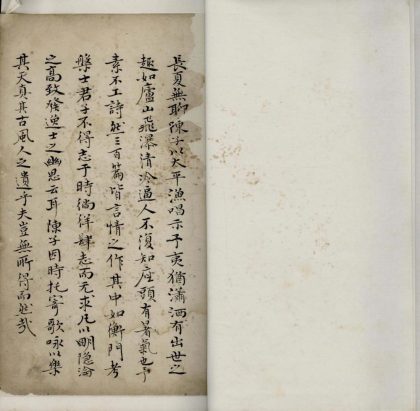 長夏無聊陳子以太平漁唱示予夷猶瀟洒有出世之
趣如廬山飛瀑清冷逼人不復知座頭有暑氣也予
素不工詩然三百篇皆言情之作其中如衡門考
槃士君子不得志于時徜徉肆志而无求凡以明隐淪
之高致發逸士之幽思云耳陳子因時托寄歌咏以樂
其天真其古風人之遺乎夫豈無所得而然哉